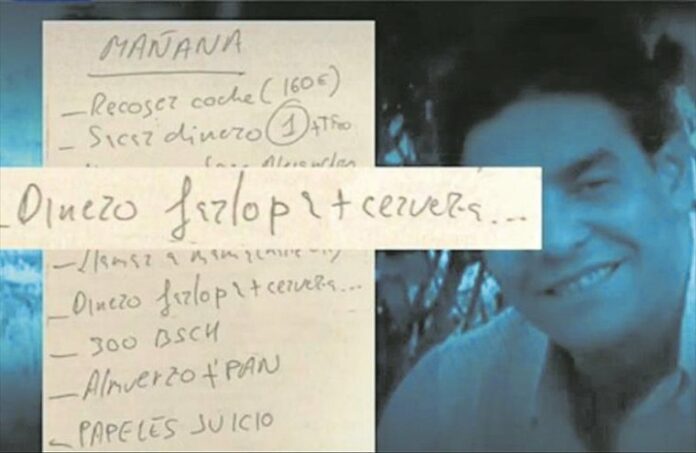 MAÑANA
— Recoger coche (160€)
— Sacar dinero 1
— Dinero farlopa + cerveza...
— Llamar a
— Dinero farlopa + cerveza...
— 300 BSCH
— Almuerzo + PAN
— PAPELES JUICIO